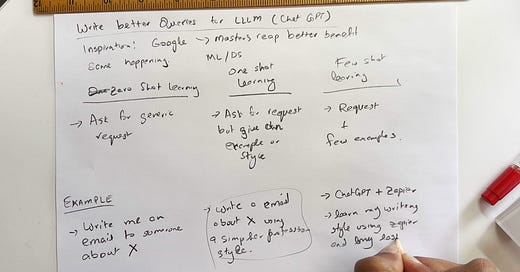 Write better Queries for LLLM (Chat GPT)
Inspiration: Google → Masters reap better benefit
Same happening ML/DS
Zero Shot Learning
→ Ask for generic
request
One shot
Learning
→ Ask for request
but give an
example or
style
Few shot
learning
→ Request
+
few examples.
EXAMPLE
→ Write me an
email to someone
about X
→ Write a email
about X using
a simpler
style.
→ ChatGPT + Zapier
→ learn my writing
style using Zapier
and my last